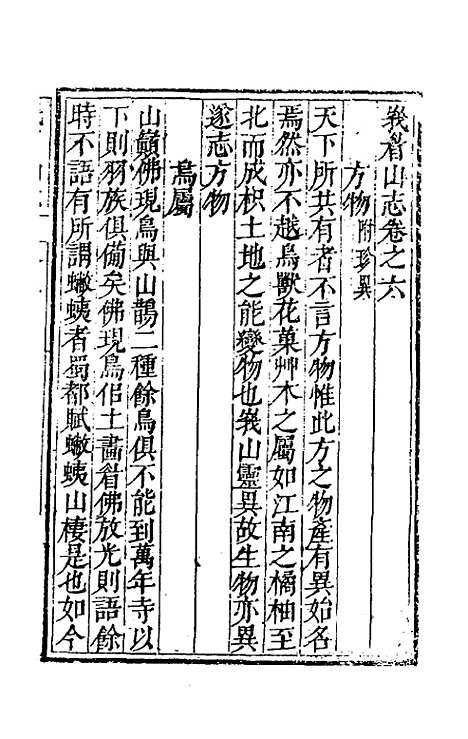 峩眉山志卷之六
方物附珍異
天下所共有者不言方物惟此方之物產有異始名
焉然亦不越鳥獸花菓艸木之屬如江南之橘柚至
北而成枳土地之能變物也峩山靈異故生物亦異
遂志方物
鳥屬
山巔佛現鳥與山鷴二種餘鳥俱不能到萬年寺以
下則羽族俱備矣佛現鳥佀土畵眉佛放光則語餘
時不語有所謂𧌇蛦者蜀都賦𧌇蛦山棲是也如今